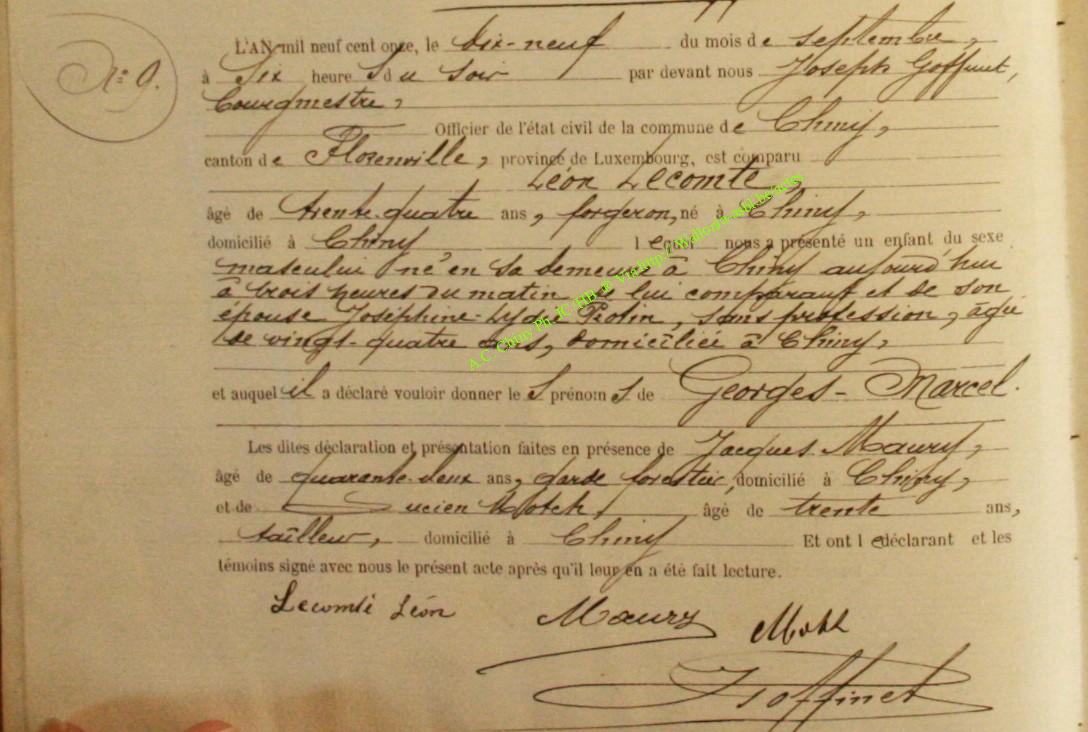 N° 9.
L'AN mil neuf cent onze, le dix-neuf du mois de septembre,
à six heures du soir par devant nous Joseph Goffinet,
bourgmestre,
Officier de l'état civil de la commune de Chiny,
canton de Florenville, province de Luxembourg, est comparu
Léon Lecomte,
âgé de trente-quatre ans, forgeron, né à Chiny,
domicilié à Chiny lequel nous a présenté un enfant du sexe
masculin né en sa demeure à Chiny aujourd'hui
à trois heures du matin de lui comparant et de son
épouse Joséphine- sans profession, âgée
de vingt-quatre ans, domiciliée à Chiny,
et auquel il a déclaré vouloir donner les prénoms de Georges-Marcel.
Les dites déclaration et présentation faites en présence de Jacques Maury,
âgé de quarante-deux ans, garde forestier, domicilié à Chiny,
et de Lucien âgé de trente ans,
tailleur, domicilié à Chiny Et ont le déclarant et les
témoins signé avec nous le présent acte après qu'il leur en a été fait lecture.
Lecomte Léon Maury
Goffinet